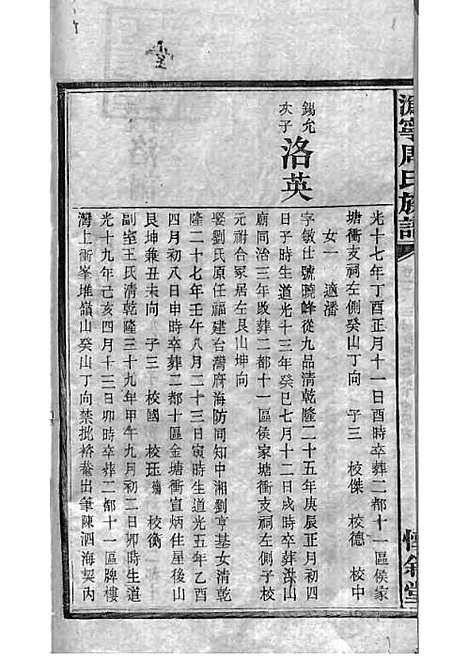 溈寧周氏族譜
光十七年丁酉正月十一日酉時卒葬二都十一區侯家
塘衝支祠左側癸山丁向 子三 校傑 校德 校中
女一 適潘
錫允次子 洛英
字敏仕號曉峰從九品清乾隆二十五年庚辰正月初四
日子時生道光十三年癸巳七月十二日戌時卒葬深山
廟同治三年敗葬二都十一區侯家塘衝支祠左側子校
元祔合冢居左艮山坤向
娶劉氏原任福建台灣府海防同知中湘劉亨基女清乾
隆二十七年壬午八月二十三日寅時生道光五年乙酉
四月初八日申時卒葬二都十區金塘衝宣炳住屋後山
艮坤兼丑未向 子三 校國 校珏 校衡
副室王氏清乾隆三十九年甲午九月初二日卯時生道
光十九年己亥四月十三日卯時卒葬二都十一區牌樓
灣上衝峯堆嶺山癸山丁向禁批裕菴出筆陳泗海契內
惇敘堂